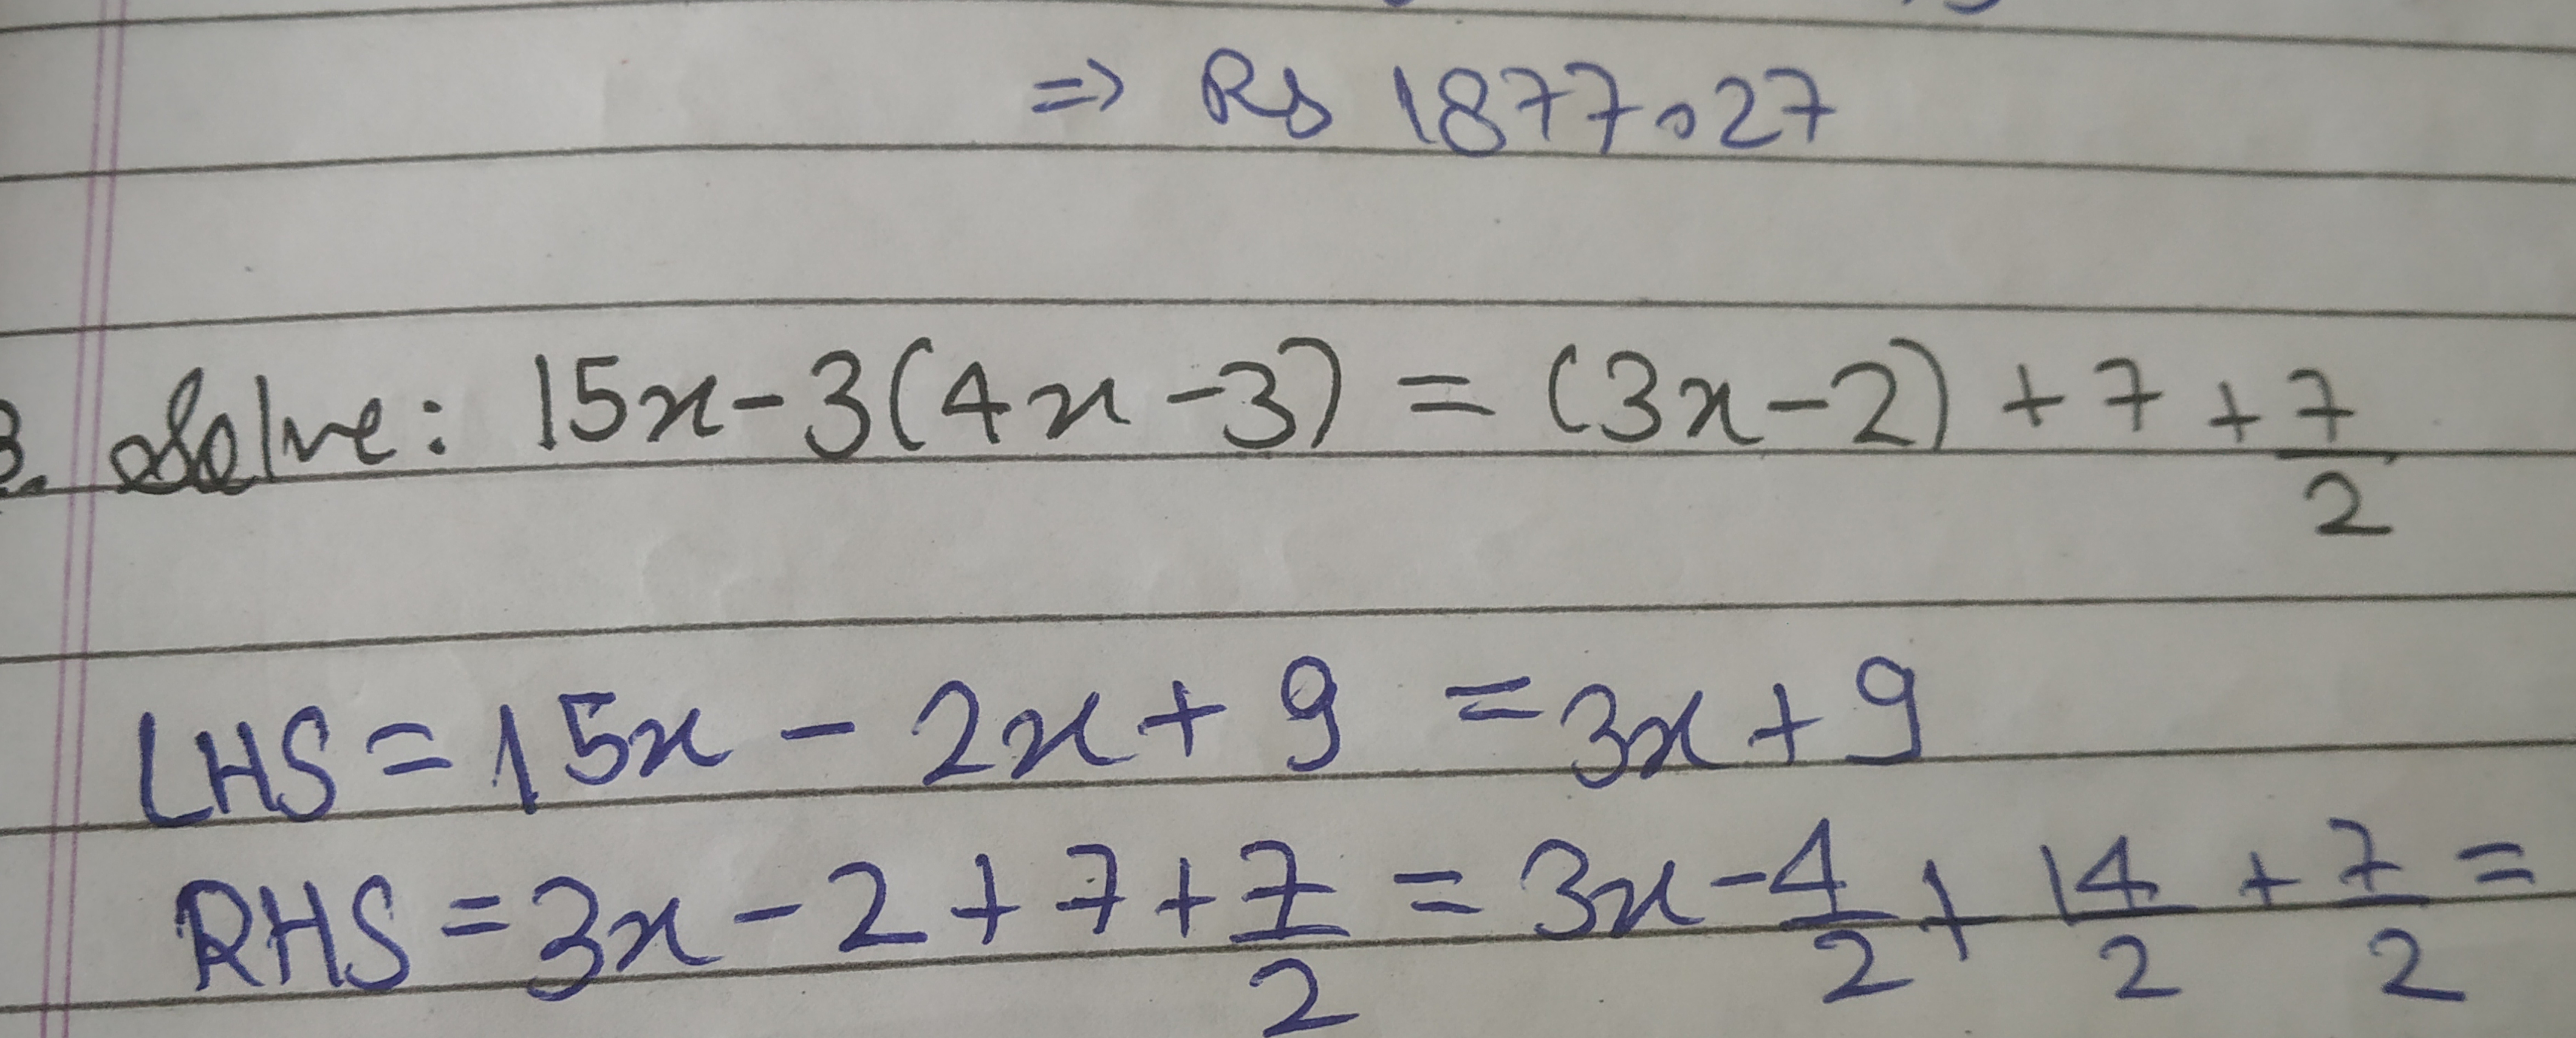 => Rs 1877.27
3. Solve: 15x-3(4x-3) = (3x-2)+7+7/2
LHS = 15x - 2x + 9 = 3x + 9
RHS = 3x - 2 + 7 + 7/2 = 3x - 4/2 + 14/2 + 7/2 =